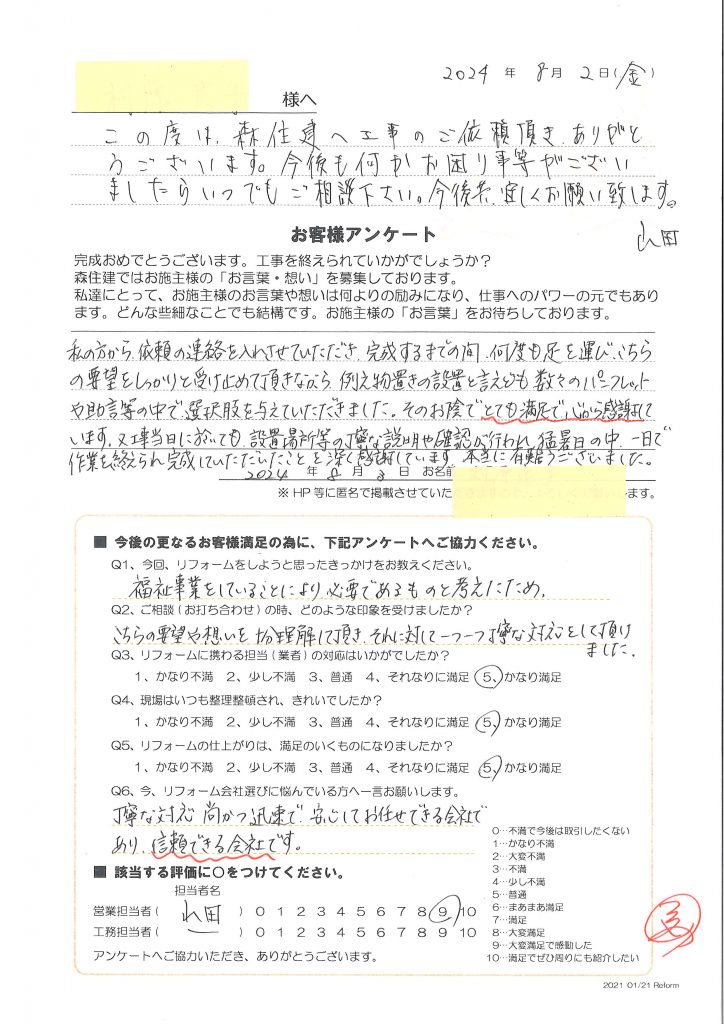 2024 年 8月 2日(金)
様へ
この度は、森住建へ工事のご依頼頂き、ありがと
うございます。今後も何かお困り事等がござい
ましたらいつでもご相談下さい。今後共、宜しくお願い致します。
山田
お客様アンケート
完成おめでとうございます。工事を終えられていかがでしょうか?
森住建ではお施主様の「お言葉・想い」を募集しております。
私達にとって、お施主様のお言葉や想いは何よりの励みになり、仕事へのパワーの元でもあり
ます。どんな些細なことでも結構です。お施主様の「お言葉」をお待ちしております。
私の方から、依頼の連絡を入れさせていただき、完成するまでの間、何度も足を運び、こちら
の要望をしっかりと受け止めて頂きながら、例え物置きの設置と言えども数々のパンフレット
や助言等の中で、選択肢を与えていただきました。そのお陰でとても満足で心から感謝して
います。又工事当日に於いても、設置場所等の丁寧な説明や確認が行われ、猛暑日の中、一日で
作業も終えられ完成していただいたことを深く感謝しています。本当に有難うございました。
2024 年 8 月 3 日 お名前
※ HP 等に匿名で掲載させていた
ます。
■ 今後の更なるお客様満足の為に、下記アンケートへご協力ください。
Q1、今回、リフォームをしようと思ったきっかけをお教えください。
福祉事業をしていることにより必要であるものと考えたため。
Q2、ご相談(お打ち合わせ)の時、どのような印象を受けましたか?
こちらの要望や想いを十分理解して頂き、それに対して一つ一つ丁寧な対応をして頂け
ました。
Q3、リフォームに携わる担当(業者)の対応はいかがでしたか?
1、かなり不満 2、少し不満 3、普通 4、それなりに満足 5、かなり満足
Q4、現場はいつも整理整頓され、きれいでしたか?
1、かなり不満 2、少し不満 3、普通 4、それなりに満足 5、かなり満足
Q5、リフォームの仕上がりは、満足のいくものになりましたか?
1、かなり不満 2、少し不満 3、普通 4、それなりに満足 5、かなり満足
Q6、今、リフォーム会社選びに悩んでいる方へ一言お願いします。
丁寧な対応、尚かつ迅速で、安心してお任せできる会社で
あり、信頼できる会社です。
■ 該当する評価に○をつけてください。
担当者名
営業担当者( 山田 )0 1 2 3 4 5 6 7 8 9 10
工務担当者( ー )0 1 2 3 4 5 6 7 8 9 10
アンケートへご協力いただき、ありがとうございます。
0…不満で今後は取引したくない
1…かなり不満
2…大変不満
3…不満
4…少し不満
5…普通
6…まあまあ満足
7…満足
8…大変満足
9…大変満足で感動した
10…満足でぜひ周りにも紹介したい
2021 01/21 Reform